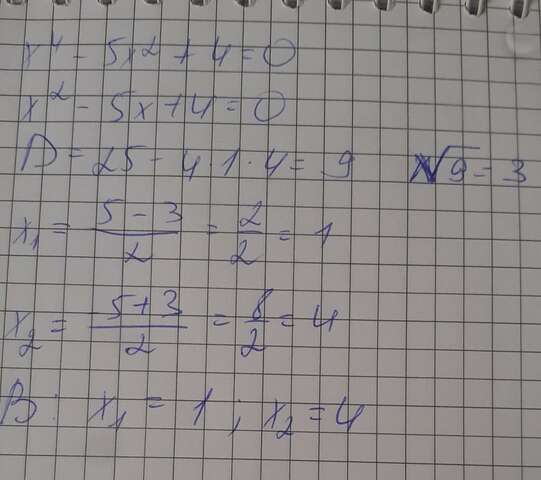 x⁴ - 5x² + 4 = 0
x² - 5x + 4 = 0
D = 25 - 4 · 1 · 4 = 9 √9 = 3
x₁ = (5 - 3)/2 = 2/2 = 1
x₂ = (5 + 3)/2 = 8/2 = 4
В: x₁ = 1 ; x₂ = 4